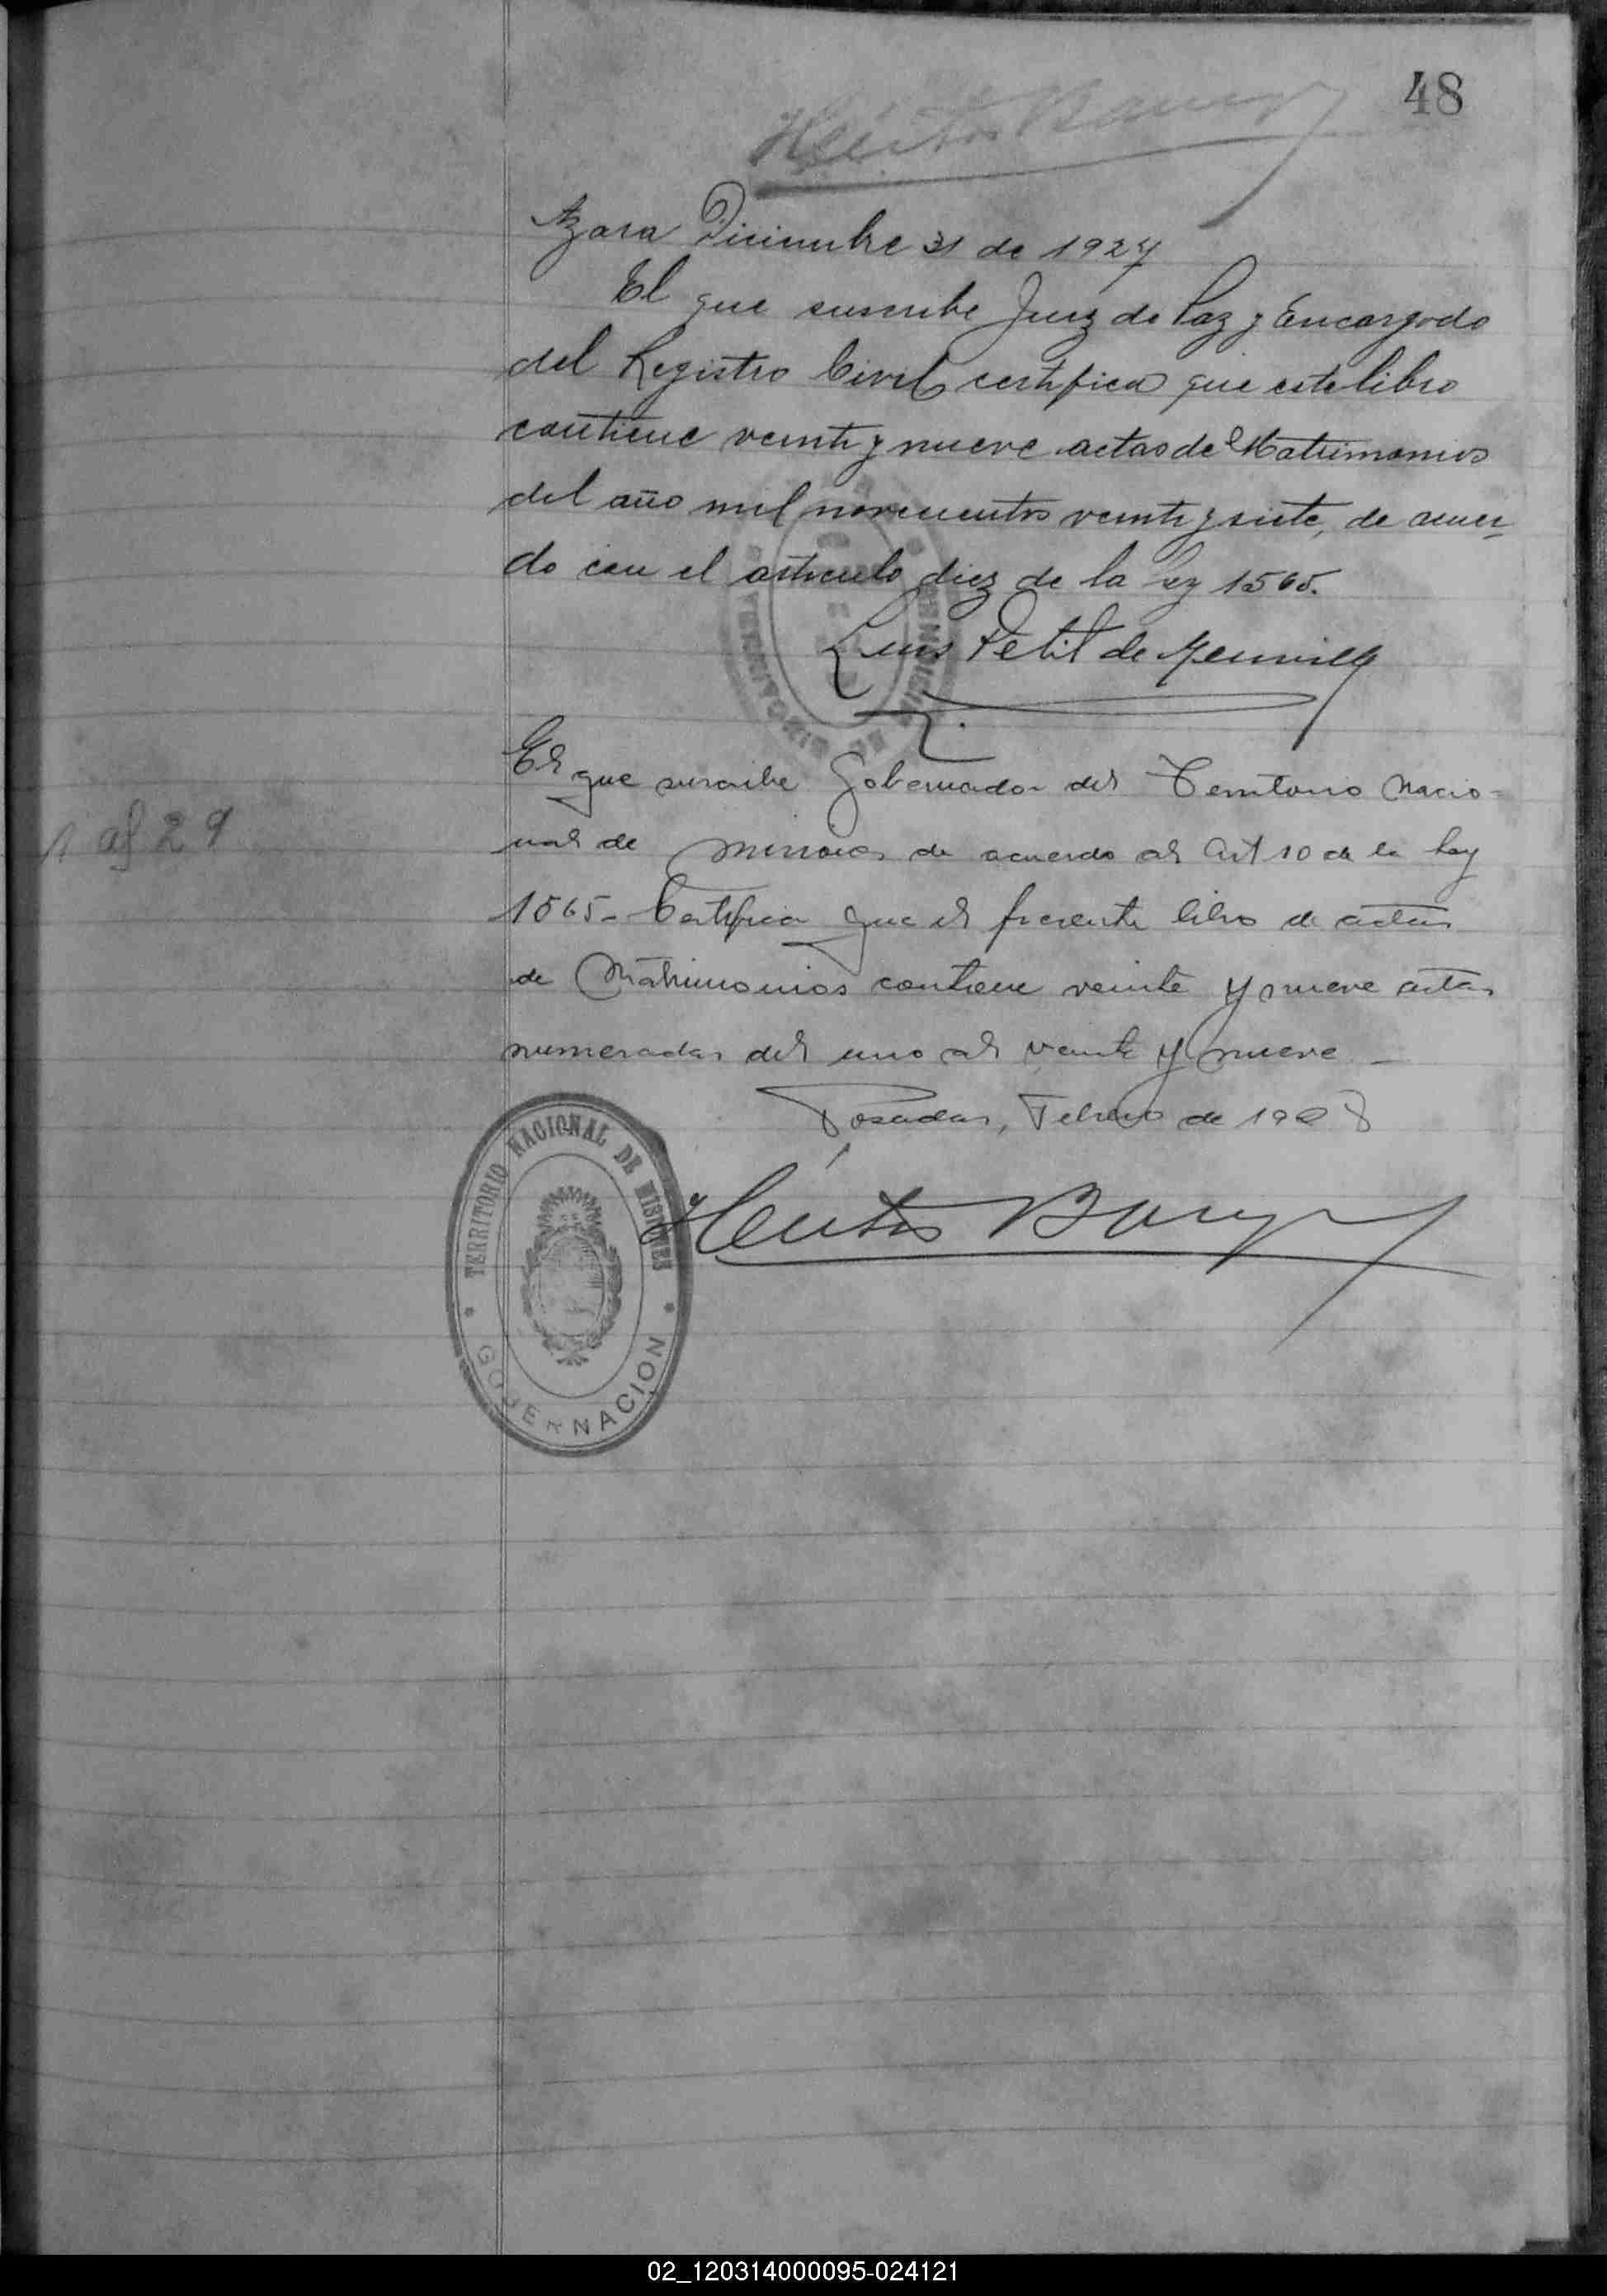 48
Héctor Barreyro
Azara Diciembre 31 de 1927
El que suscribe Juez de Paz y Encargado
del Registro Civil certifica que este libro
contiene veinti y nueve actas de Matrimonios
del año mil novecientos veinti y siete, de acuer
do con el articulo diez de la ley 1565.
Luis Petit de Meurville
El que suscribe Gobernador del Territorio Nacio-
nal de Misiones de acuerdo al Art 10 de la Ley
1565- Certifica que el presente libro de actas
1 al 29
de Matrimonios contiene veinte y nueve actas
numeradas del uno al veinte y nueve -
Posadas, Febrero de 1928
Héctor Barreyro
TERRITORIO NACIONAL DE MISIONES
GOBERNACION
02_120314000095-024121